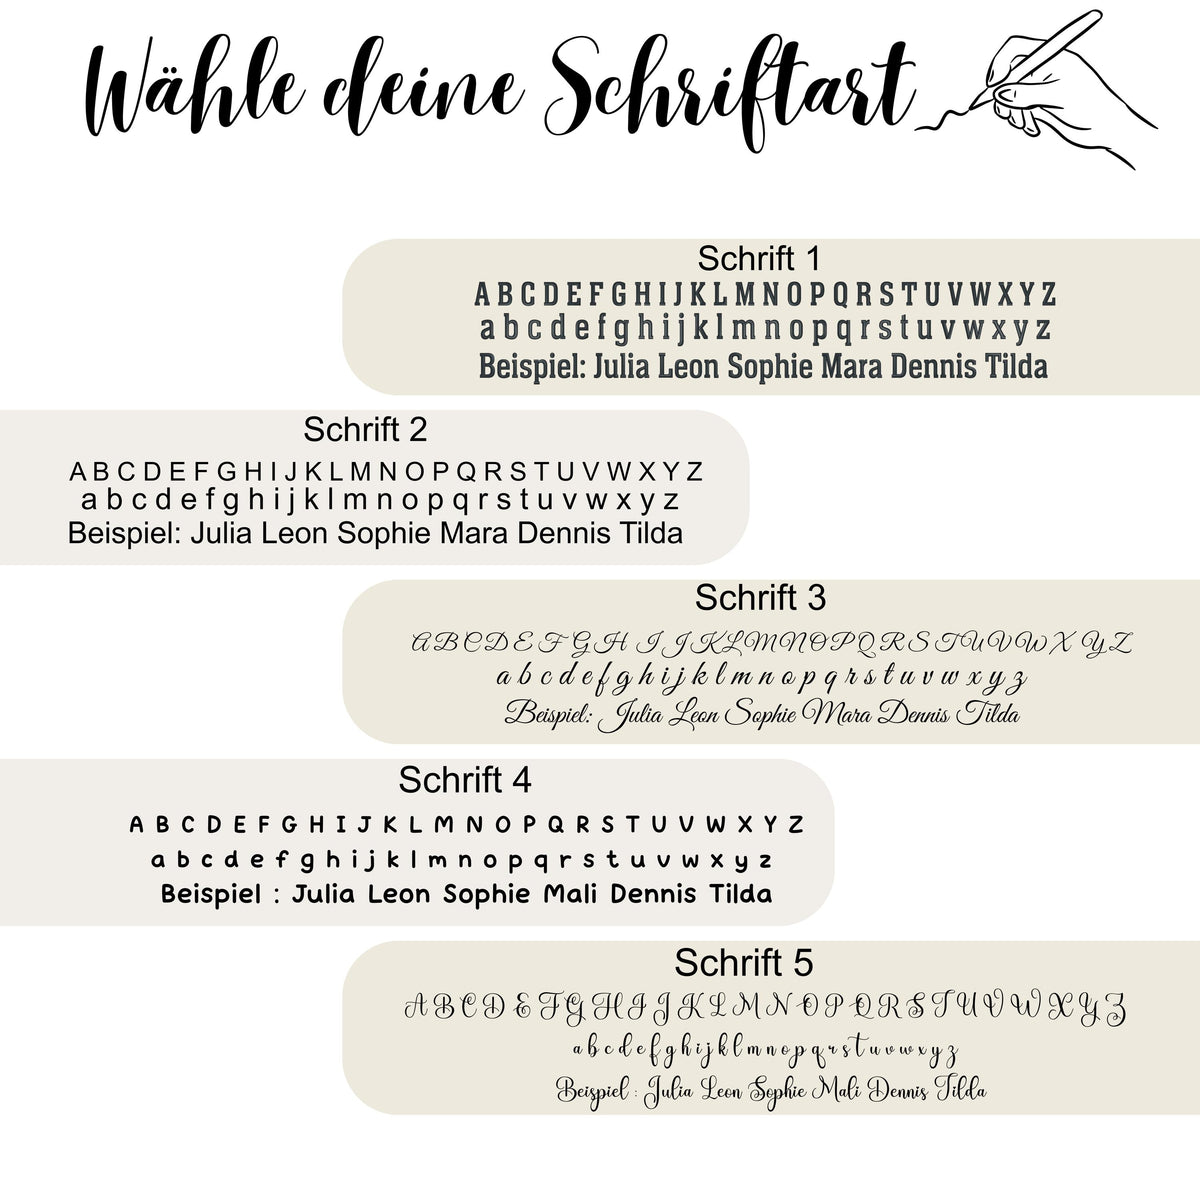 Wähle deine Schriftart
Schrift 1
A B C D E F G H I J K L M N O P Q R S T U V W X Y Z
a b c d e f g h i j k l m n o p q r s t u v w x y z
Beispiel: Julia Leon Sophie Mara Dennis Tilda
Schrift 2
A B C D E F G H I J K L M N O P Q R S T U V W X Y Z
a b c d e f g h i j k l m n o p q r s t u v w x y z
Beispiel: Julia Leon Sophie Mara Dennis Tilda
Schrift 3
A B C D E F G H I J K L M N O P Q R S T U V W X Y Z
a b c d e f g h i j k l m n o p q r s t u v w x y z
Beispiel: Julia Leon Sophie Mara Dennis Tilda
Schrift 4
A B C D E F G H I J K L M N O P Q R S T U V W X Y Z
a b c d e f g h i j k l m n o p q r s t u v w x y z
Beispiel : Julia Leon Sophie Mali Dennis Tilda
Schrift 5
A B C D E F G H I J K L M N O P Q R S T U V W X Y Z
a b c d e f g h i j k l m n o p q r s t u v w x y z
Beispiel : Julia Leon Sophie Mali Dennis Tilda